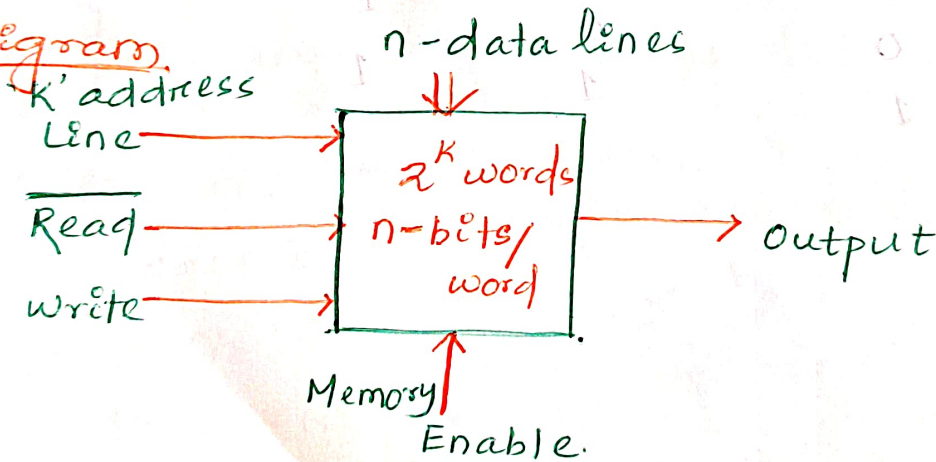 n-data lines
K' address
Line
Read
write
2^K words
n-bits/
word
output
Memory
Enable.